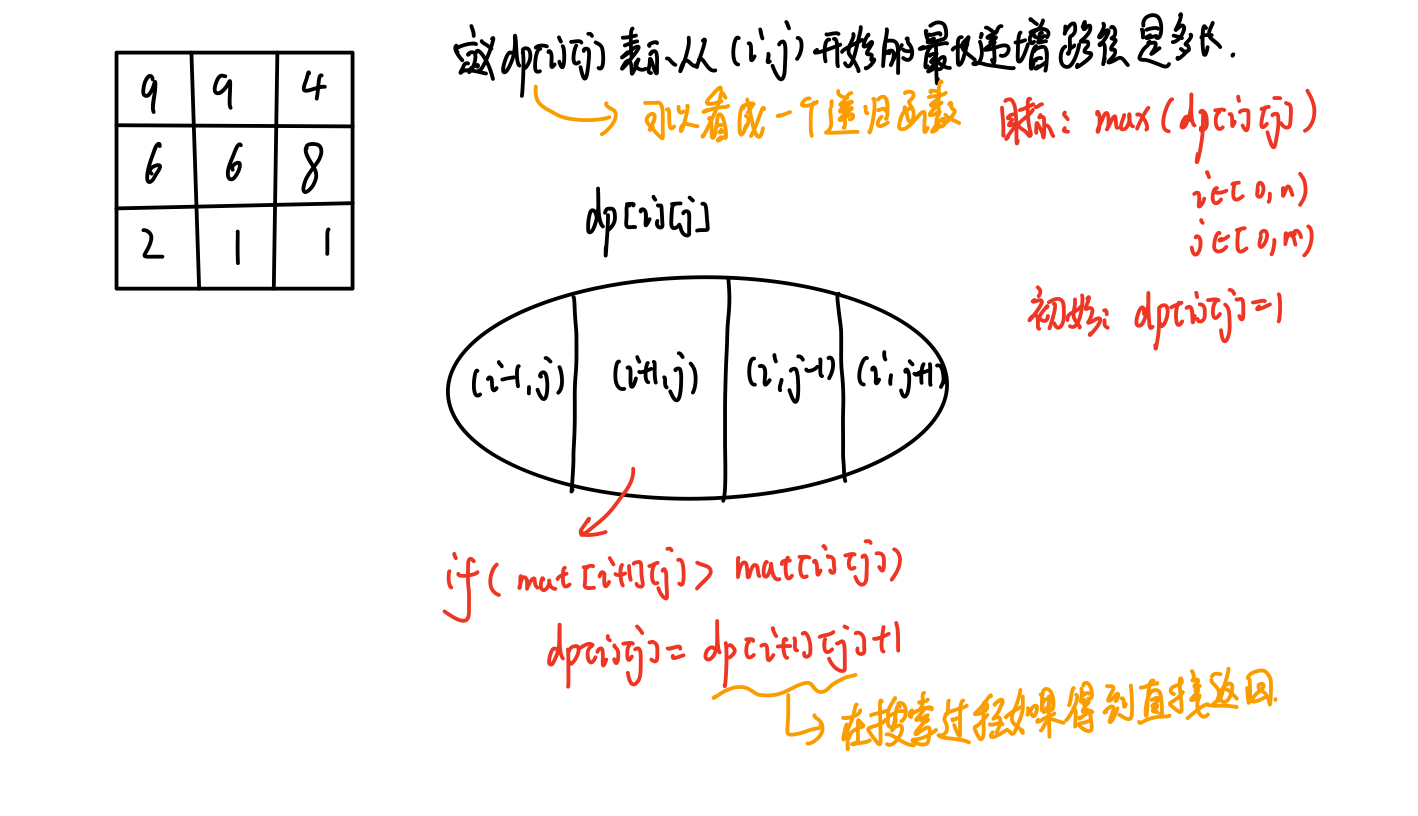 9 9 4
6 6 8
2 1 1
定义dp[i][j]表示从(i,j)开始的最长递增路径是多长.
可以看成一个递归函数
目标: max(dp[i][j])
i∈[0,n)
j∈[0,m)
初始: dp[i][j]=1
dp[i][j]
(i-1,j) (i+1,j) (i,j-1) (i,j+1)
if(mat[i+1][j]>mat[i][j])
dp[i][j]=dp[i+1][j]+1
在搜索过程如果得到直接返回.